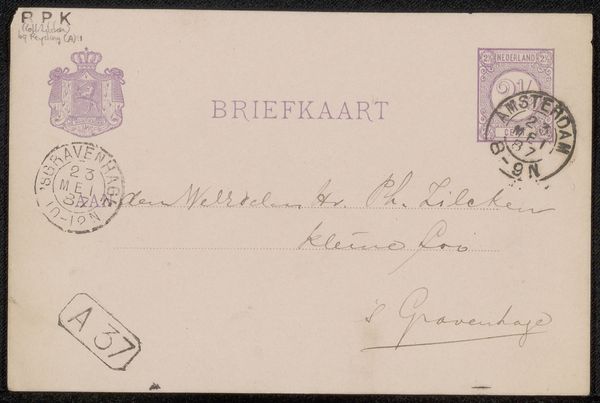 R P K
(A) 1
2½ NEDERLAND 2½
2½
CENT
BRIEFKAART
AMSTERDAM
23
MEI
87
8-9N
'SGRAVENHAGE
23
MEI
87
10-12N
AAN den Weledelen Hr. Ph. Zilcken
Kleine Loo
's Gravenhage
A 37